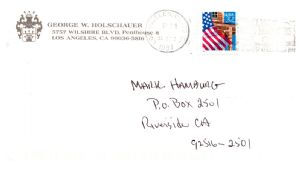 GEORGE W. HOLSCHAUER
5757 WILSHIRE BLVD, Penthouse 8
LOS ANGELES, CA 90036-5816
MARK HAMBURG
P.O. BOX 2501
Riverside CA
92516-2501